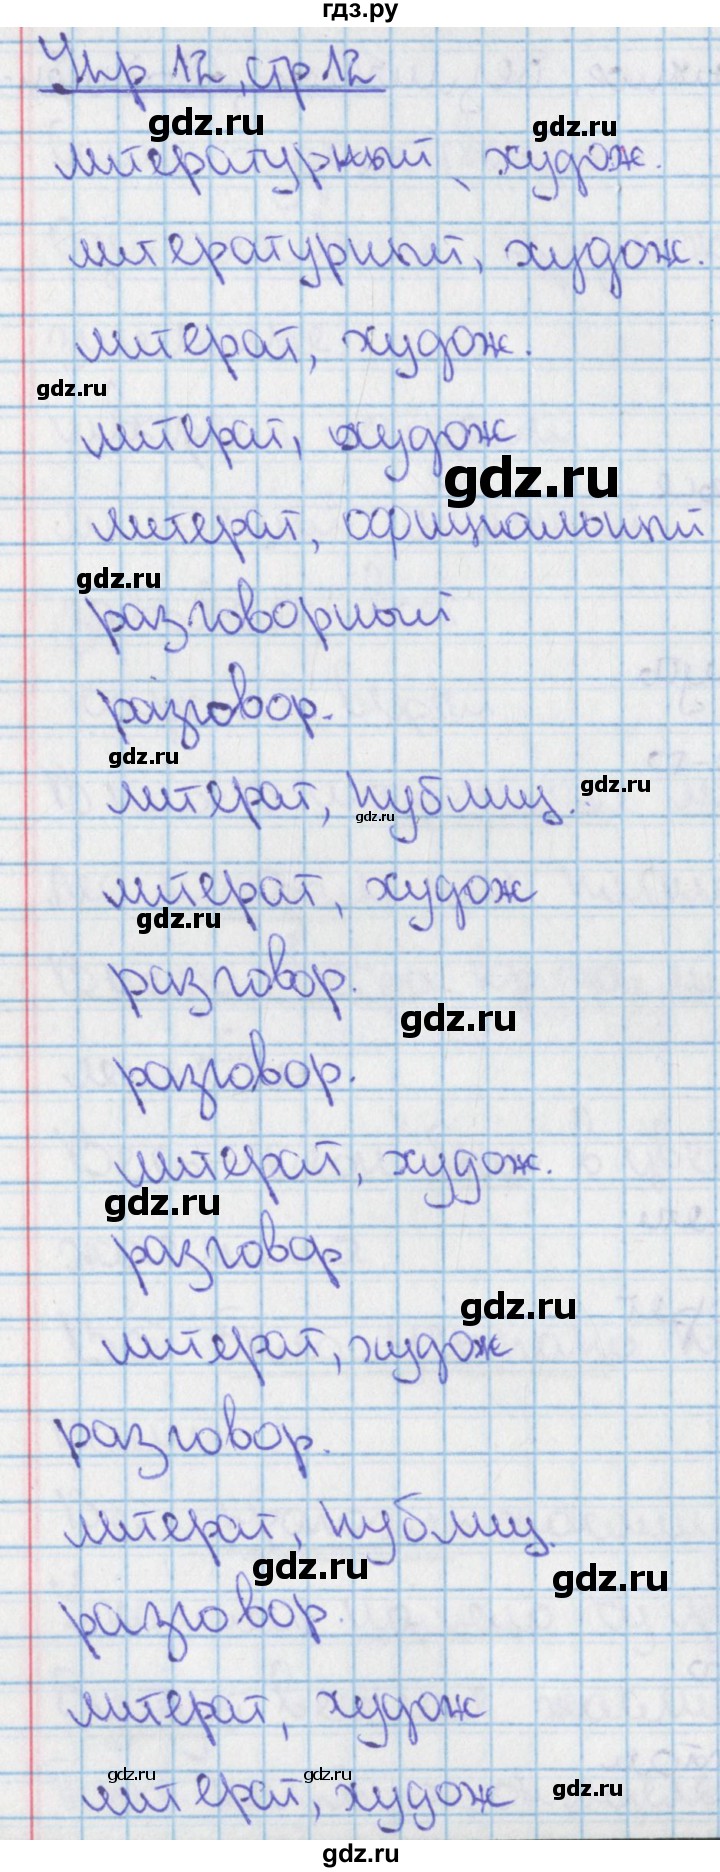 гдз.ру
Упр 12, стр 12
gdz.ru
gdz.ru
литературный, худож.
литературный, худож.
литерат, худож.
gdz.ru
литерат, худож
gdz.ru
литерат, официальный
gdz.ru
разговорный
разговор.
gdz.ru
gdz.ru
литерат, публиц.
gdz.ru
литерат, худож
gdz.ru
разговор.
gdz.ru
разговор.
литерат, худож.
gdz.ru
разговор
gdz.ru
литерат, худож
разговор.
литерат, публиц.
gdz.ru
gdz.ru
разговор.
литерат, худож
gdz.ru gdz.ru
gdz.ru
литерат, худож
gdz.ru